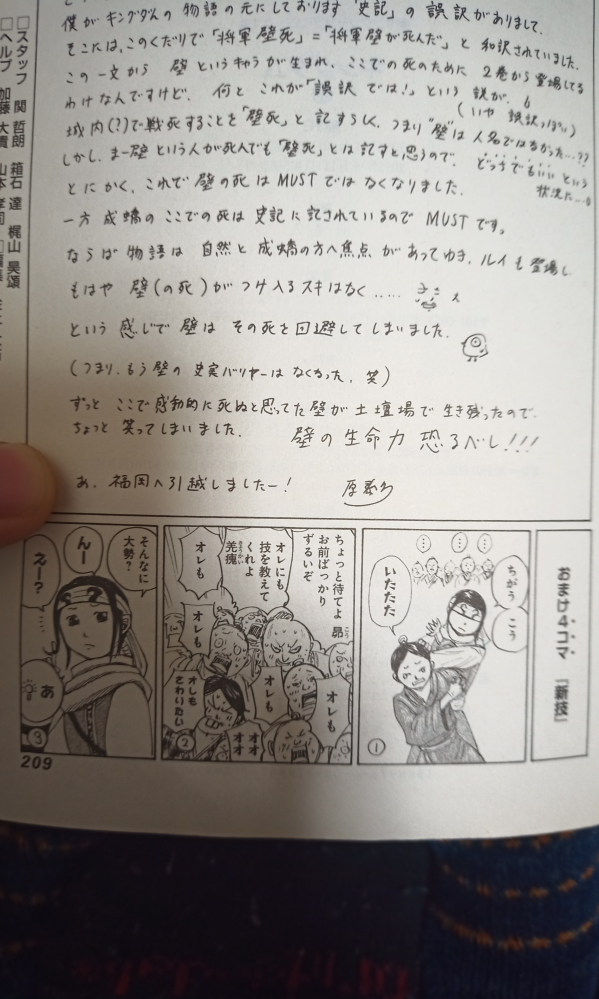 僕がキングダムの物語の元にしております「史記」の誤訳がありまして。
そこには、このくだりで「将軍壁死」=「将軍壁が死んだ」と和訳されていました。
この一文から 壁というキャラが生まれ、ここでの死のために2巻から登場してる
わけなんですけど、何とこれが「誤訳では!」という説が。
(いや誤訳っぽい)
城内(?)で戦死することを「壁死」と記すらしく、つまり"壁"は人名ではなかった…??
しかし、まー壁という人が死んでも「壁死」とは記すと思うので、どっちでもいいという
状況だ…。
とにかく、これで壁の死はMUSTではなくなりました。
一方 成蟜のここでの死は史記に記されているのでMUSTです。
ならば物語は自然と成蟜の方へ焦点があってゆき、ルイも登場し
もはや 壁(の死)がつけ入るスキはなく……
という感じで壁はその死を回避してしまいました。
(つまり、もう壁の史実バリヤーはなくなった。笑)
ずっとここで感動的に死ぬと思ってた壁が土壇場で生き残ったので、
ちょっと笑ってしまいました。 壁の生命力 恐るべし!!!
あ、福岡へ引越しましたー! 原泰久
□スタッフ 関 哲朗 箱石 達 梶山 昊頌
□ヘルプ 加藤 大貴 山本
おまけ4コマ 『新技』
ちがう
こう
…
…
…
いたたた
①
ちょっと待てよ 昴
お前ばっかり
ずるいぞ
オレにも
技を教えて
くれよ
羌瘣
オレも
オレも
オレも
オレも
オレも
さわりたい
オオ
オオ
②
そんなに
大勢?
んー
えー?
あ
③
209